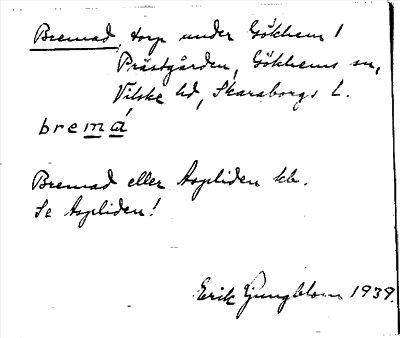 Bremad, torp under Gökhem 1
Prästgården, Gökhems sn,
Vilske hd, Skaraborgs l.
bremá
Bremad eller Aspliden kb.
Se Aspliden!
Erik Ljungblom 1939.